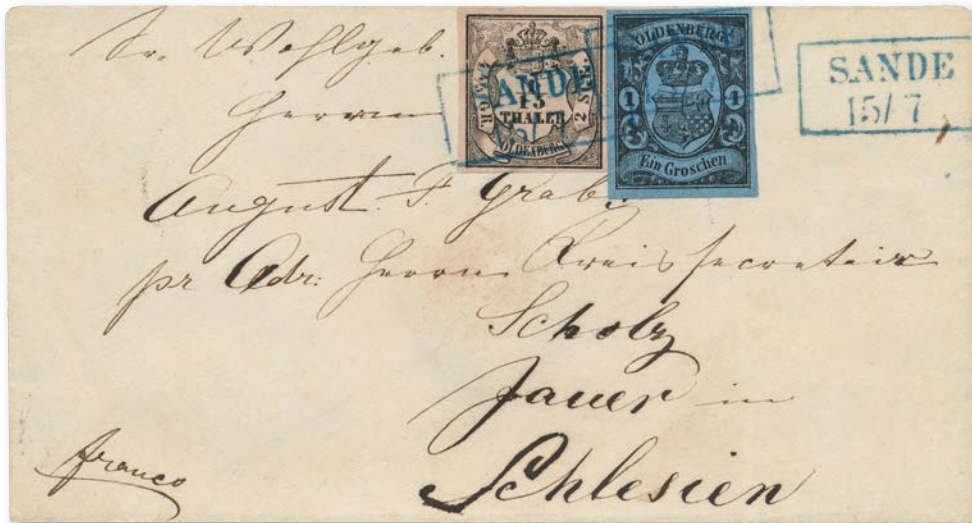 Sr. Wohlgeb.
Herrn
August. F. Grabe.
pr Adr: Herrn Kreissecretair
Scholz
Jauer in
Schlesien
franco
1
15
THALER
2 S. GR.
OLDENBURG
ANDE
15/7
OLDENBURG
1 1
Ein Groschen
SANDE
15/7